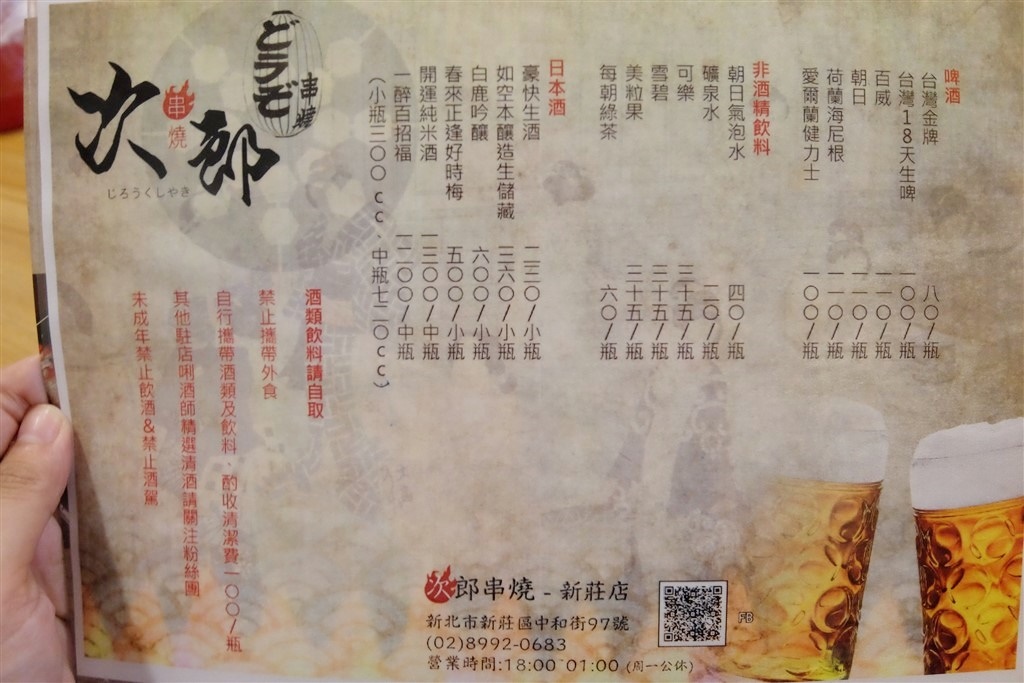 啤酒
台灣金牌 八〇/瓶
台灣18天生啤 一〇〇/瓶
百威 一一〇/瓶
朝日 一一〇/瓶
荷蘭海尼根 一一〇/瓶
愛爾蘭健力士 一〇〇/瓶
非酒精飲料
朝日氣泡水 四〇/瓶
礦泉水 二〇/瓶
可樂 三十五/瓶
雪碧 三十五/瓶
美粒果 三十五/瓶
每朝綠茶 六〇/瓶
日本酒
豪快生酒 二三〇/小瓶
如空本釀造生儲藏 三六〇/小瓶
白鹿吟釀 六〇〇/小瓶
春來正逢好時梅 五〇〇/小瓶
開運純米酒 一三〇〇/中瓶
一醉百招福 一二〇〇/中瓶
(小瓶三〇〇cc、中瓶七二〇cc)
どうぞ
串燒
次郎
串燒
じろうくしやき
酒類飲料請自取
禁止攜帶外食
自行攜帶酒類及飲料、酌收清潔費一〇〇/瓶
其他駐店唎酒師精選清酒請關注粉絲團
未成年禁止飲酒&禁止酒駕
次郎串燒 - 新莊店
新北市新莊區中和街97號
(02)8992-0683
營業時間:18:00~01:00 (周一公休)
FB